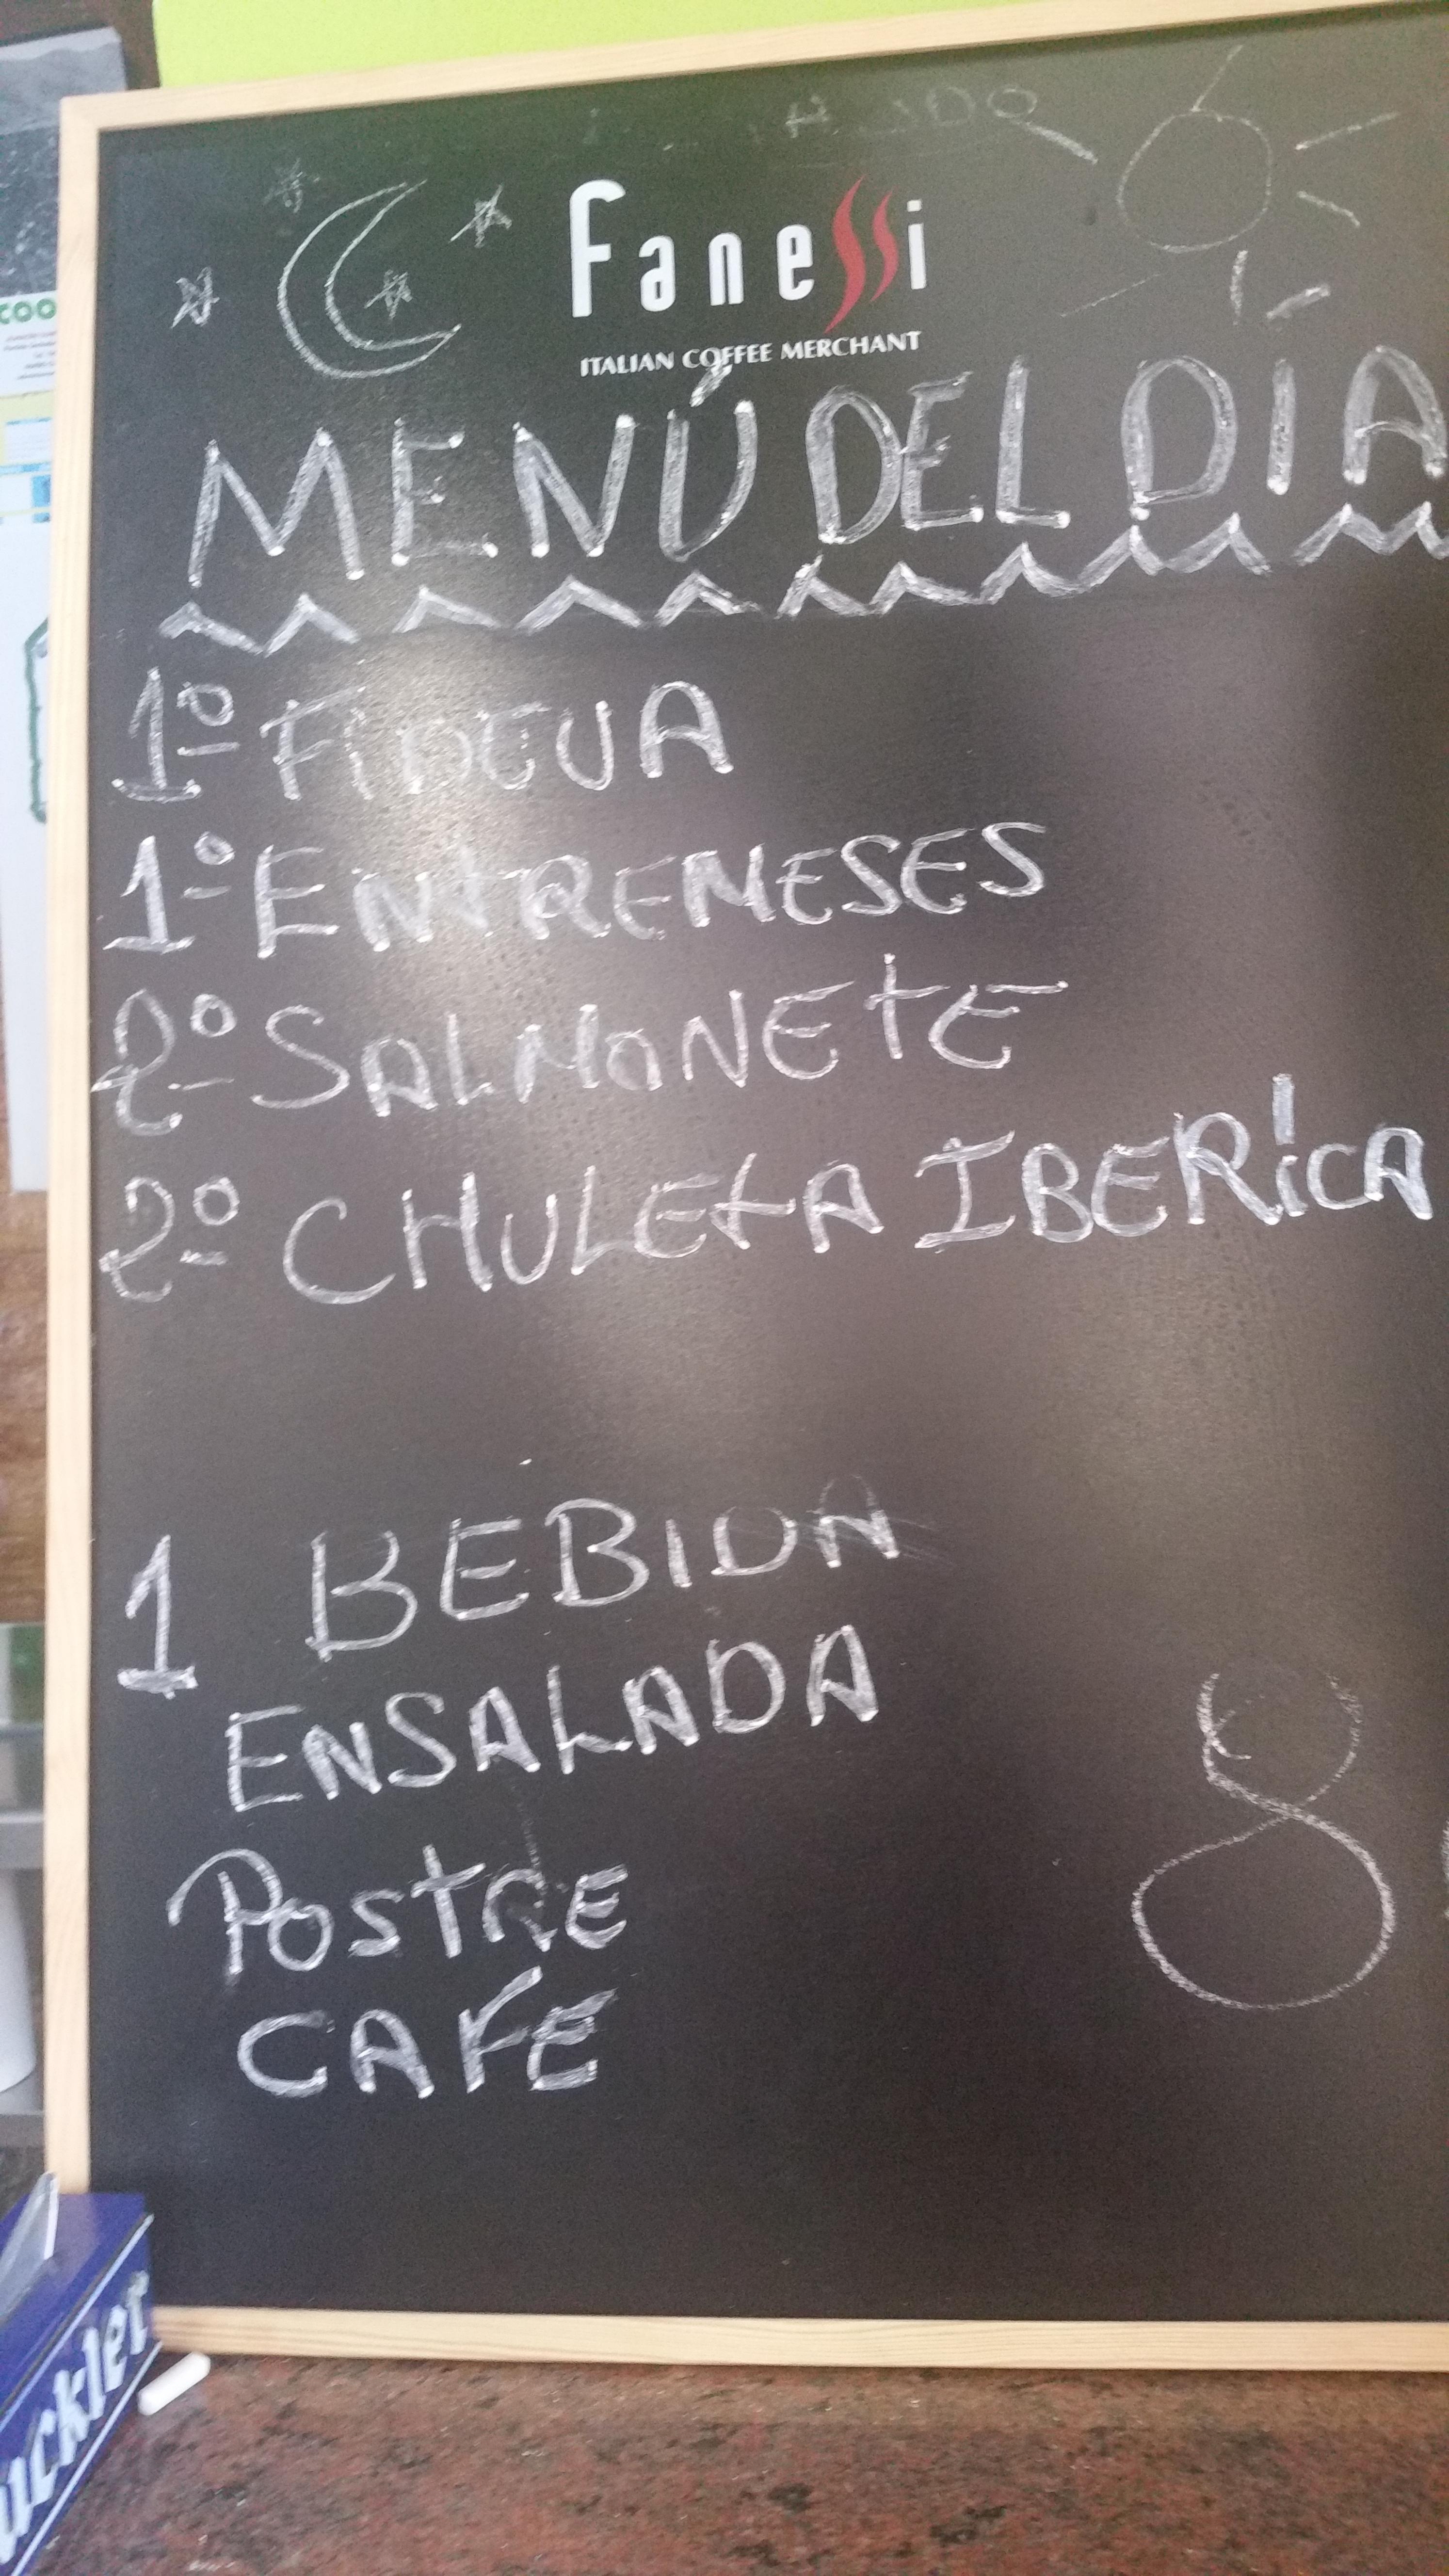 Fanessi
ITALIAN COFFEE MERCHANT
MENÚ DEL DIA
1º FIDEUA
1º ENTREMESES
2º SALMONETE
2º CHULETA IBERICA
1 BEBIDA
ENSALADA
POSTRE
CAFE
8
uckler